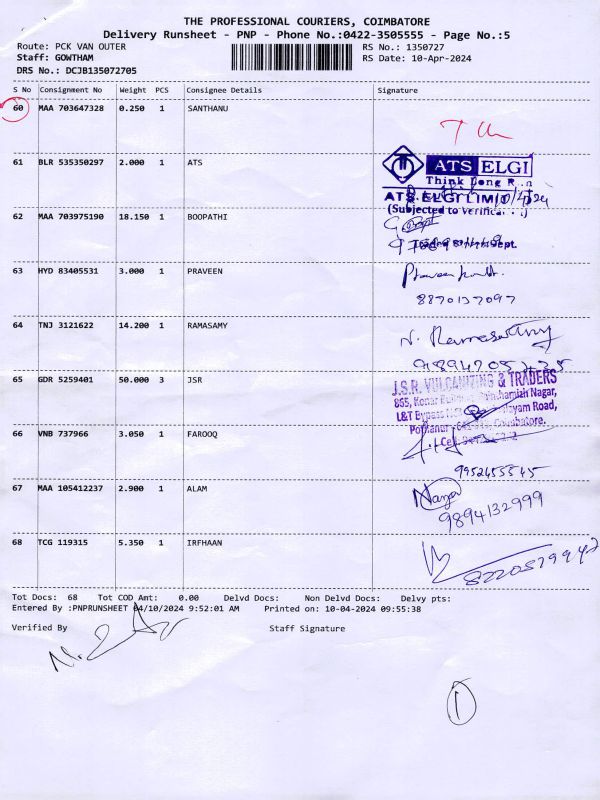 THE PROFESSIONAL COURIERS, COIMBATORE
Delivery Runsheet - PNP - Phone No.:0422-3505555 - Page No.:5
Route: PCK VAN OUTER RS No.: 1350727
Staff: GOWTHAM RS Date: 10-Apr-2024
DRS No.: DCJB135072705
S No Consignment No Weight PCS Consignee Details Signature
60 MAA 703647328 0.250 1 SANTHANU
61 BLR 535350297 2.000 1 ATS
ATS ELGI
Think Long
ATS ELGI LIMITED
(Subjected to Verifica
62 MAA 703975190 18.150 1 BOOPATHI
Dept.
63 HYD 83405531 3.000 1 PRAVEEN
8870137097
64 TNJ 3121622 14.200 1 RAMASAMY
N. Ramasamy
65 GDR 5259401 50.000 3 JSR
J.S.R. VULCANIZING & TRADERS
Nagar,
L&T Bypass Road,
Coimbatore.
66 VNB 737966 3.050 1 FAROOQ
9952455545
67 MAA 105412237 2.900 1 ALAM
9894132999
68 TCG 119315 5.350 1 IRFHAAN
Tot Docs: 68 Tot COD Amt: 0.00 Delvd Docs: Non Delvd Docs: Delvy pts:
Entered By :PNPRUNSHEET 04/10/2024 9:52:01 AM Printed on: 10-04-2024 09:55:38
Verified By Staff Signature
1